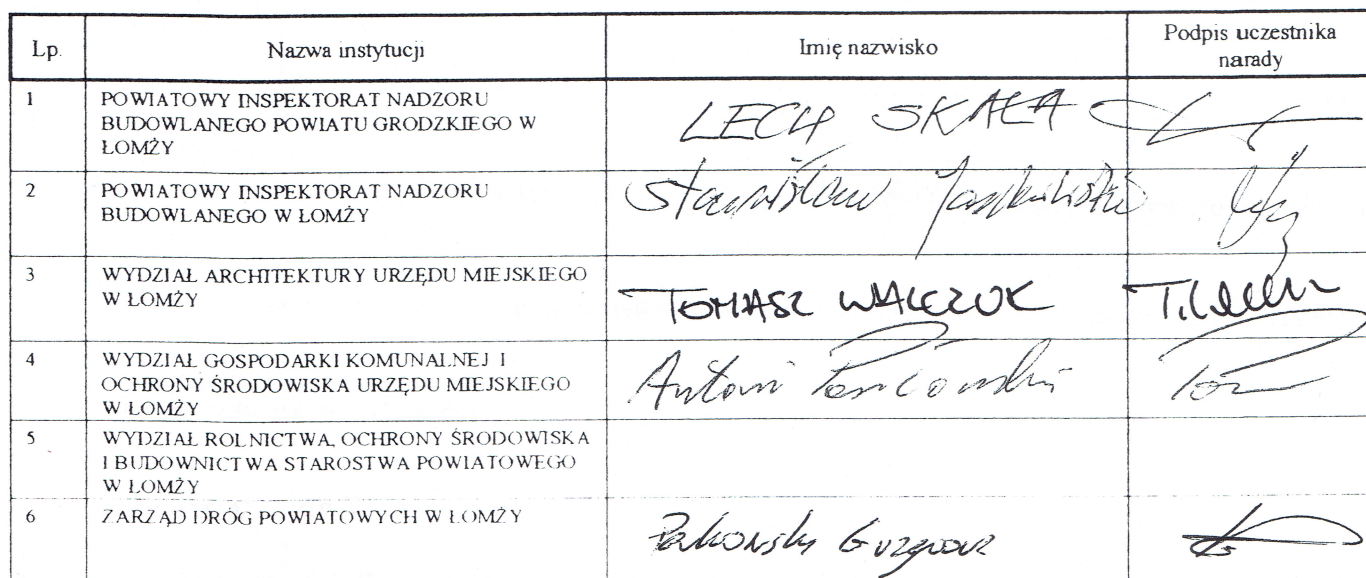 Lp. Nazwa instytucji Imię nazwisko Podpis uczestnika
narady
1 POWIATOWY INSPEKTORAT NADZORU
BUDOWLANEGO POWIATU GRODZKIEGO W
ŁOMŻY
LECH SKAŁA
2 POWIATOWY INSPEKTORAT NADZORU
BUDOWLANEGO W ŁOMŻY
Stanisław
3 WYDZIAŁ ARCHITEKTURY URZĘDU MIEJSKIEGO
W ŁOMŻY
TOMASZ WALCZUK
4 WYDZIAŁ GOSPODARKI KOMUNALNEJ I
OCHRONY ŚRODOWISKA URZĘDU MIEJSKIEGO
W ŁOMŻY
Antoni
5 WYDZIAŁ ROLNICTWA, OCHRONY ŚRODOWISKA
I BUDOWNICTWA STAROSTWA POWIATOWEGO
W ŁOMŻY
6 ZARZĄD DRÓG POWIATOWYCH W ŁOMŻY
Grzegorz